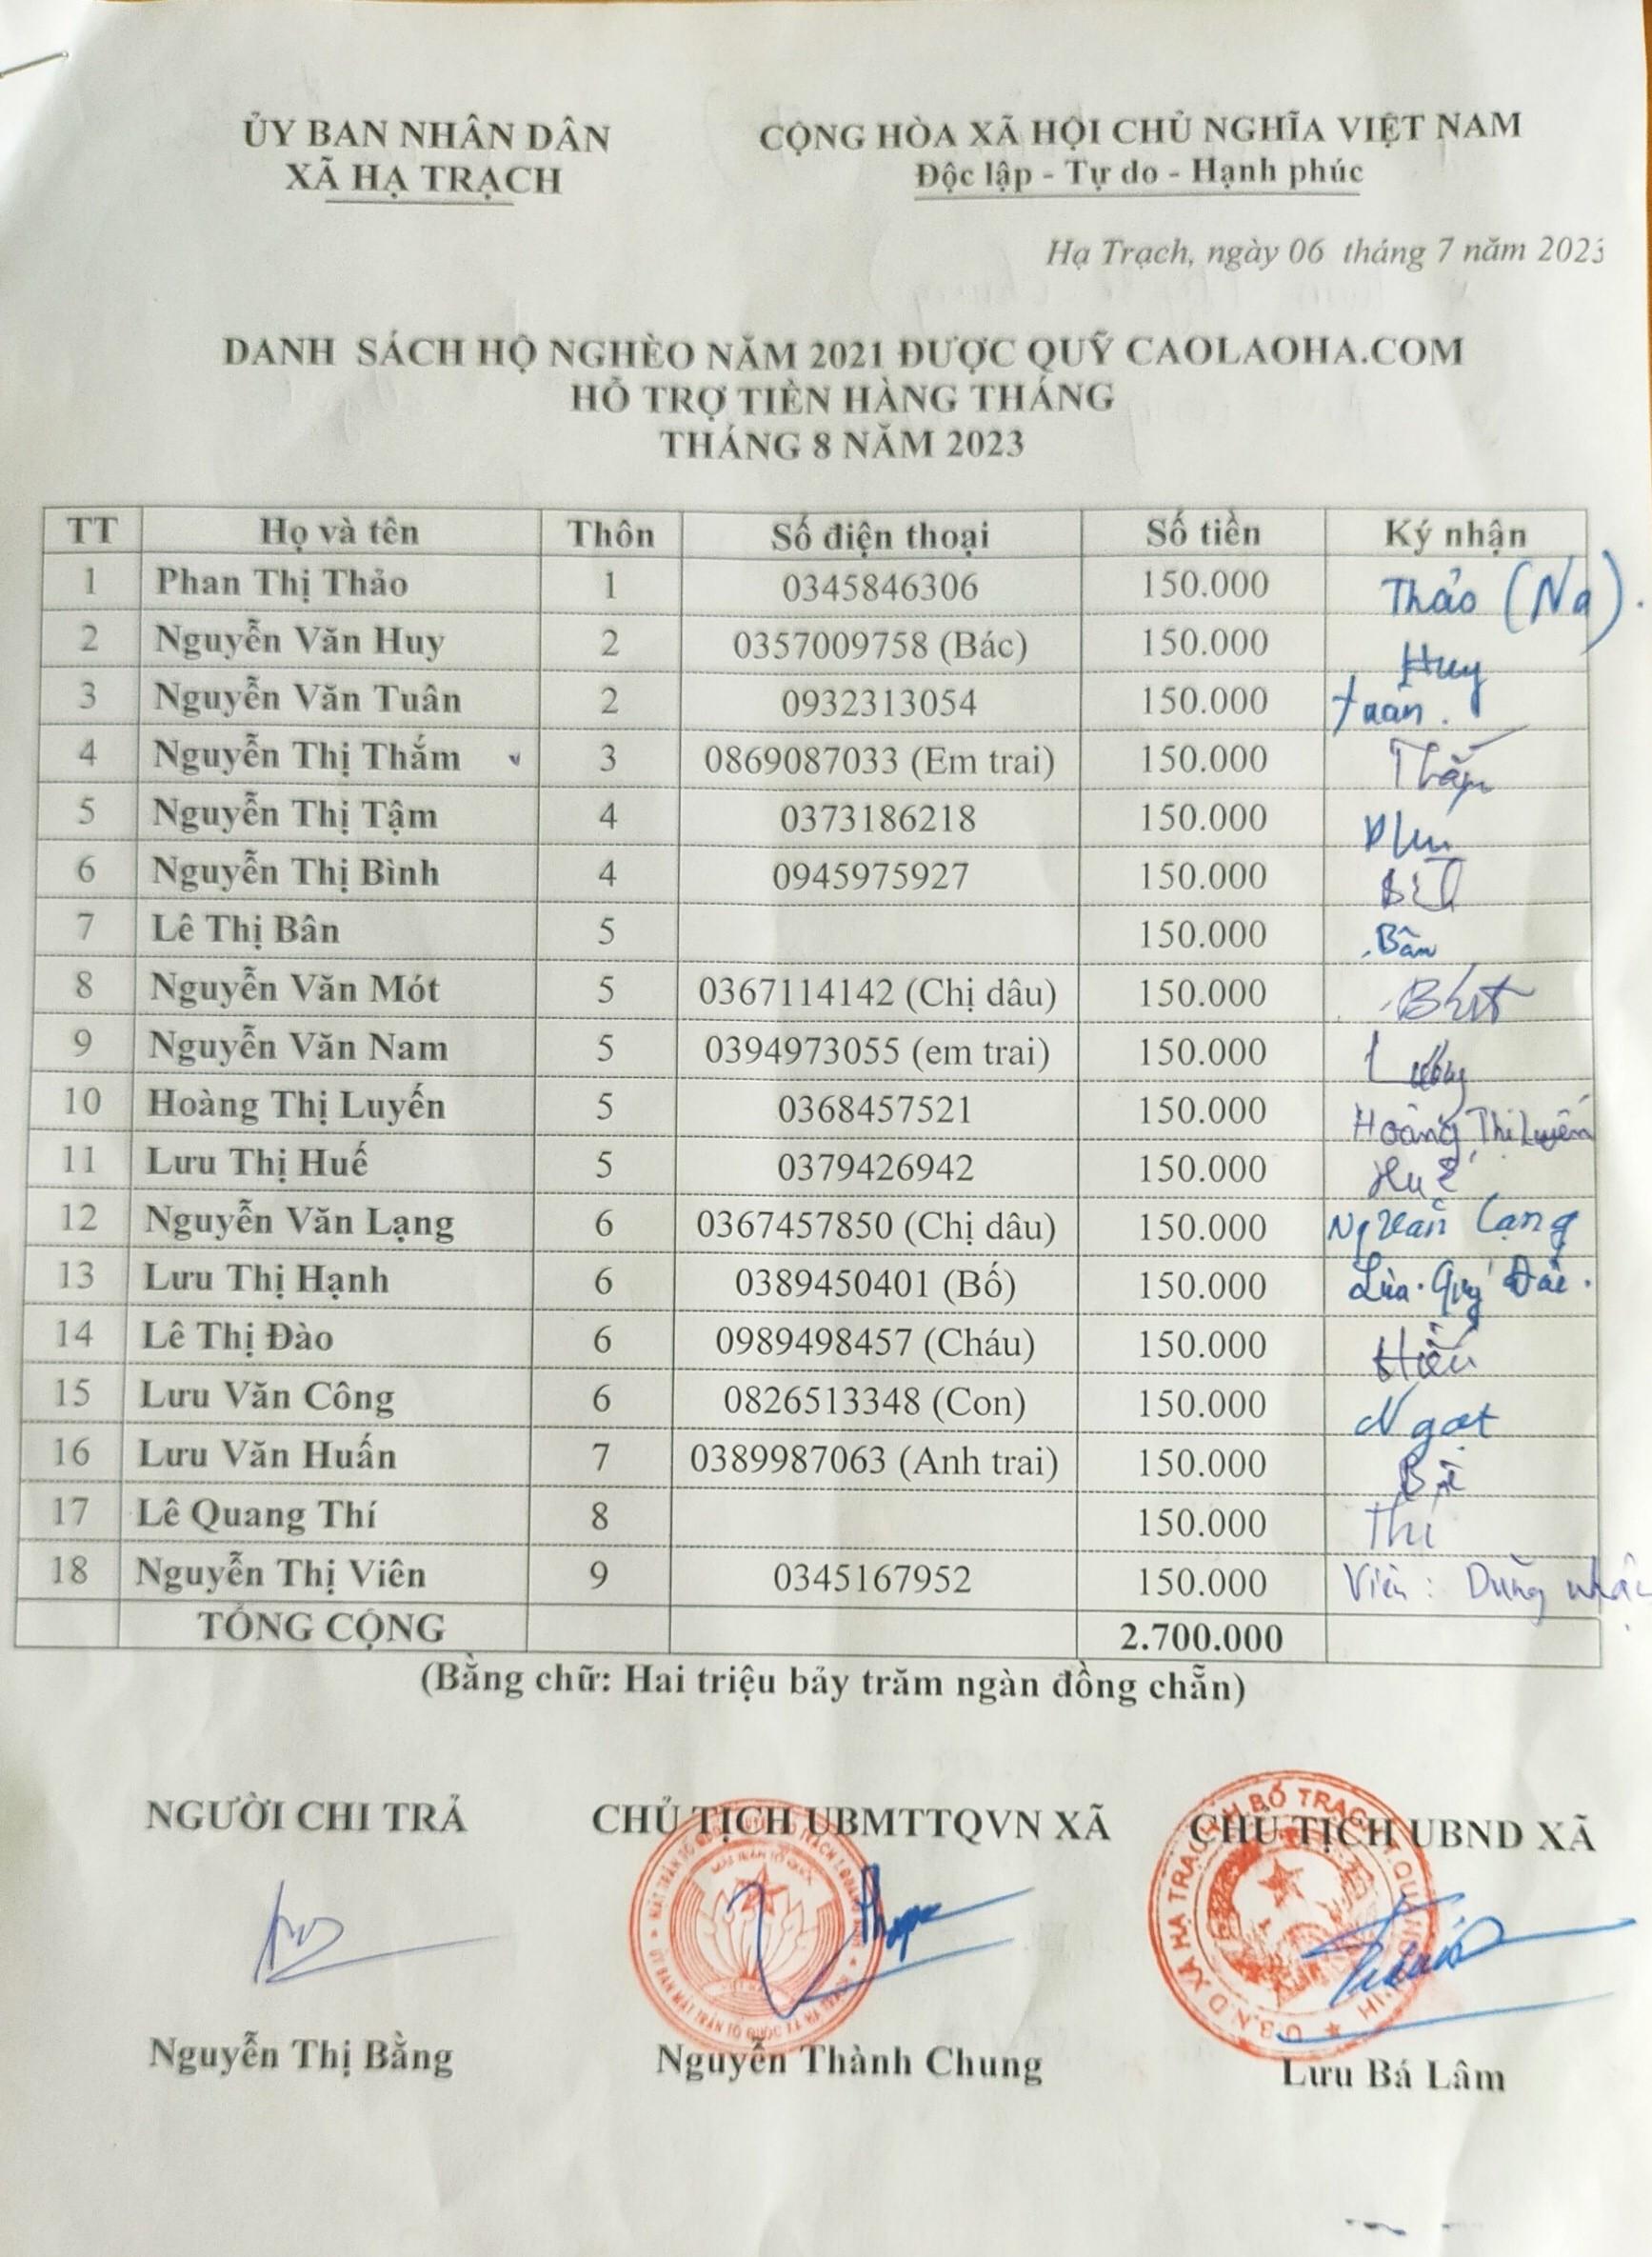 ỦY BAN NHÂN DÂN
XÃ HẠ TRẠCH
CỘNG HÒA XÃ HỘI CHỦ NGHĨA VIỆT NAM
Độc lập - Tự do - Hạnh phúc
Hạ Trạch, ngày 06 tháng 7 năm 2023
DANH SÁCH HỘ NGHÈO NĂM 2021 ĐƯỢC QUỸ CAOLAOHA.COM
HỖ TRỢ TIỀN HÀNG THÁNG
THÁNG 8 NĂM 2023
TT Họ và tên Thôn Số điện thoại Số tiền Ký nhận
1 Phan Thị Thảo 1 0345846306 150.000 Thảo (Na).
2 Nguyễn Văn Huy 2 0357009758 (Bác) 150.000 Huy
3 Nguyễn Văn Tuân 2 0932313054 150.000 tuân.
4 Nguyễn Thị Thắm 3 0869087033 (Em trai) 150.000 Thắm
5 Nguyễn Thị Tậm 4 0373186218 150.000
6 Nguyễn Thị Bình 4 0945975927 150.000
7 Lê Thị Bân 5 150.000 Bân
8 Nguyễn Văn Mót 5 0367114142 (Chị dâu) 150.000
9 Nguyễn Văn Nam 5 0394973055 (em trai) 150.000
10 Hoàng Thị Luyến 5 0368457521 150.000 Hoàng Thị Luyến
11 Lưu Thị Huế 5 0379426942 150.000 Huế
12 Nguyễn Văn Lạng 6 0367457850 (Chị dâu) 150.000 Lạng
13 Lưu Thị Hạnh 6 0389450401 (Bố) 150.000
14 Lê Thị Đào 6 0989498457 (Cháu) 150.000
15 Lưu Văn Công 6 0826513348 (Con) 150.000 Ngọt
16 Lưu Văn Huấn 7 0389987063 (Anh trai) 150.000
17 Lê Quang Thí 8 150.000 Thí
18 Nguyễn Thị Viên 9 0345167952 150.000 Viên: Dũng nhận
TỔNG CỘNG 2.700.000
(Bằng chữ: Hai triệu bảy trăm ngàn đồng chẵn)
NGƯỜI CHI TRẢ
CHỦ TỊCH UBMTTQVN XÃ
CHỦ TỊCH UBND XÃ
Nguyễn Thị Bằng
Nguyễn Thành Chung
Lưu Bá Lâm